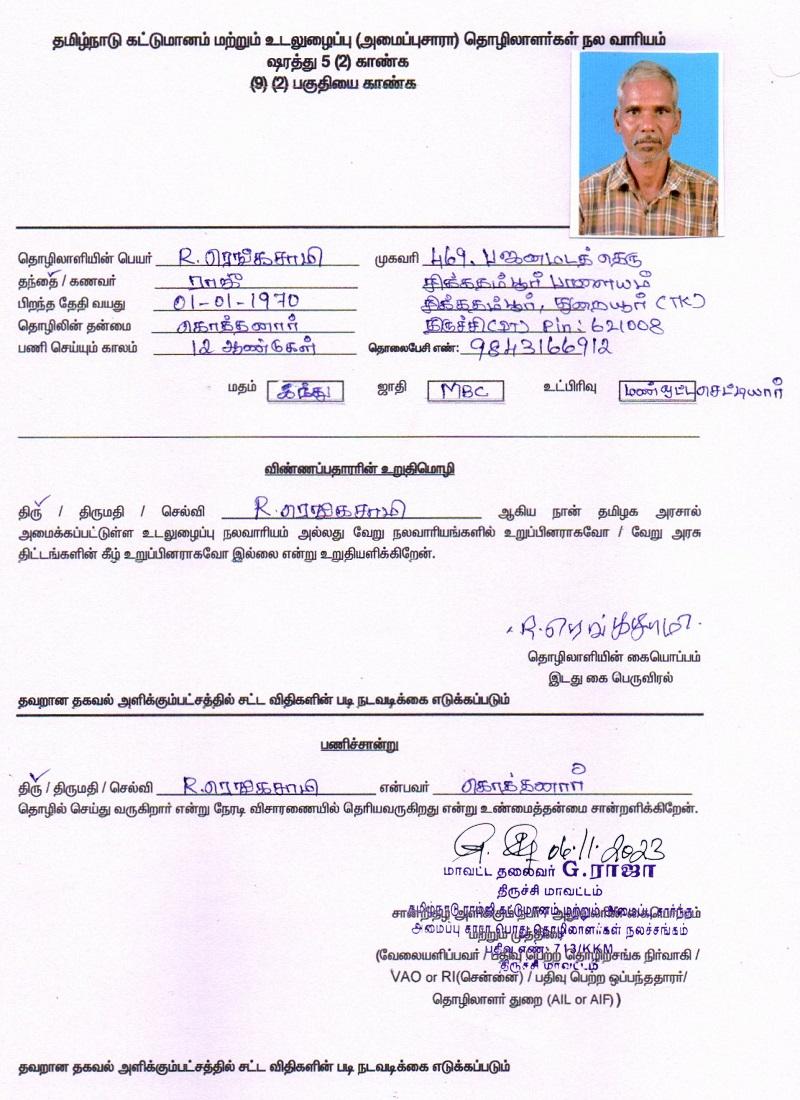 தமிழ்நாடு கட்டுமானம் மற்றும் உடலுழைப்பு (அமைப்புசாரா) தொழிலாளர்கள் நல வாரியம்
ஷரத்து 5 (2) காண்க
(9) (2) பகுதியை காண்க
தொழிலாளியின் பெயர் R. ரெங்கசாமி முகவரி 469, பஜனைமடத் தெரு
தந்தை / கணவர் ராஜீ சிக்கதம்பூர் பாளையம்
பிறந்த தேதி வயது 01-01-1970 சிக்கதம்பூர், துறையூர் (TK)
தொழிலின் தன்மை கொத்தனார் திருச்சி(மா) Pin: 621008
பணி செய்யும் காலம் 12 ஆண்டுகள் தொலைபேசி எண்: 9843166912
மதம் இந்து ஜாதி MBC உட்பிரிவு செட்டியார்
விண்ணப்பதாரரின் உறுதிமொழி
திரு / திருமதி / செல்வி R. ரெங்கசாமி ஆகிய நான் தமிழக அரசால்
அமைக்கப்பட்டுள்ள உடலுழைப்பு நலவாரியம் அல்லது வேறு நலவாரியங்களில் உறுப்பினராகவோ / வேறு அரசு
திட்டங்களின் கீழ் உறுப்பினராகவோ இல்லை என்று உறுதியளிக்கிறேன்.
R. ரெங்கசாமி
தொழிலாளியின் கையொப்பம்
இடது கை பெருவிரல்
தவறான தகவல் அளிக்கும்பட்சத்தில் சட்ட விதிகளின் படி நடவடிக்கை எடுக்கப்படும்
பணிச்சான்று
திரு / திருமதி / செல்வி R. ரெங்கசாமி என்பவர் கொத்தனார்
தொழில் செய்து வருகிறார் என்று நேரடி விசாரணையில் தெரியவருகிறது என்று உண்மைத்தன்மை சான்றளிக்கிறேன்.
06.11.2023
மாவட்ட தலைவர் G.ராஜா
திருச்சி மாவட்டம்
அமைப்பு சாரா பொது தொழிலாளர்கள் நலச்சங்கம்
பதிவு எண்: 713/KKM
திருச்சி மாவட்டம்
(வேலையளிப்பவர் / பதிவு பெற்ற தொழிற்சங்க நிர்வாகி /
VAO or RI(சென்னை) / பதிவு பெற்ற ஒப்பந்ததாரர்/
தொழிலாளர் துறை (AIL or AIF) )
தவறான தகவல் அளிக்கும்பட்சத்தில் சட்ட விதிகளின் படி நடவடிக்கை எடுக்கப்படும்